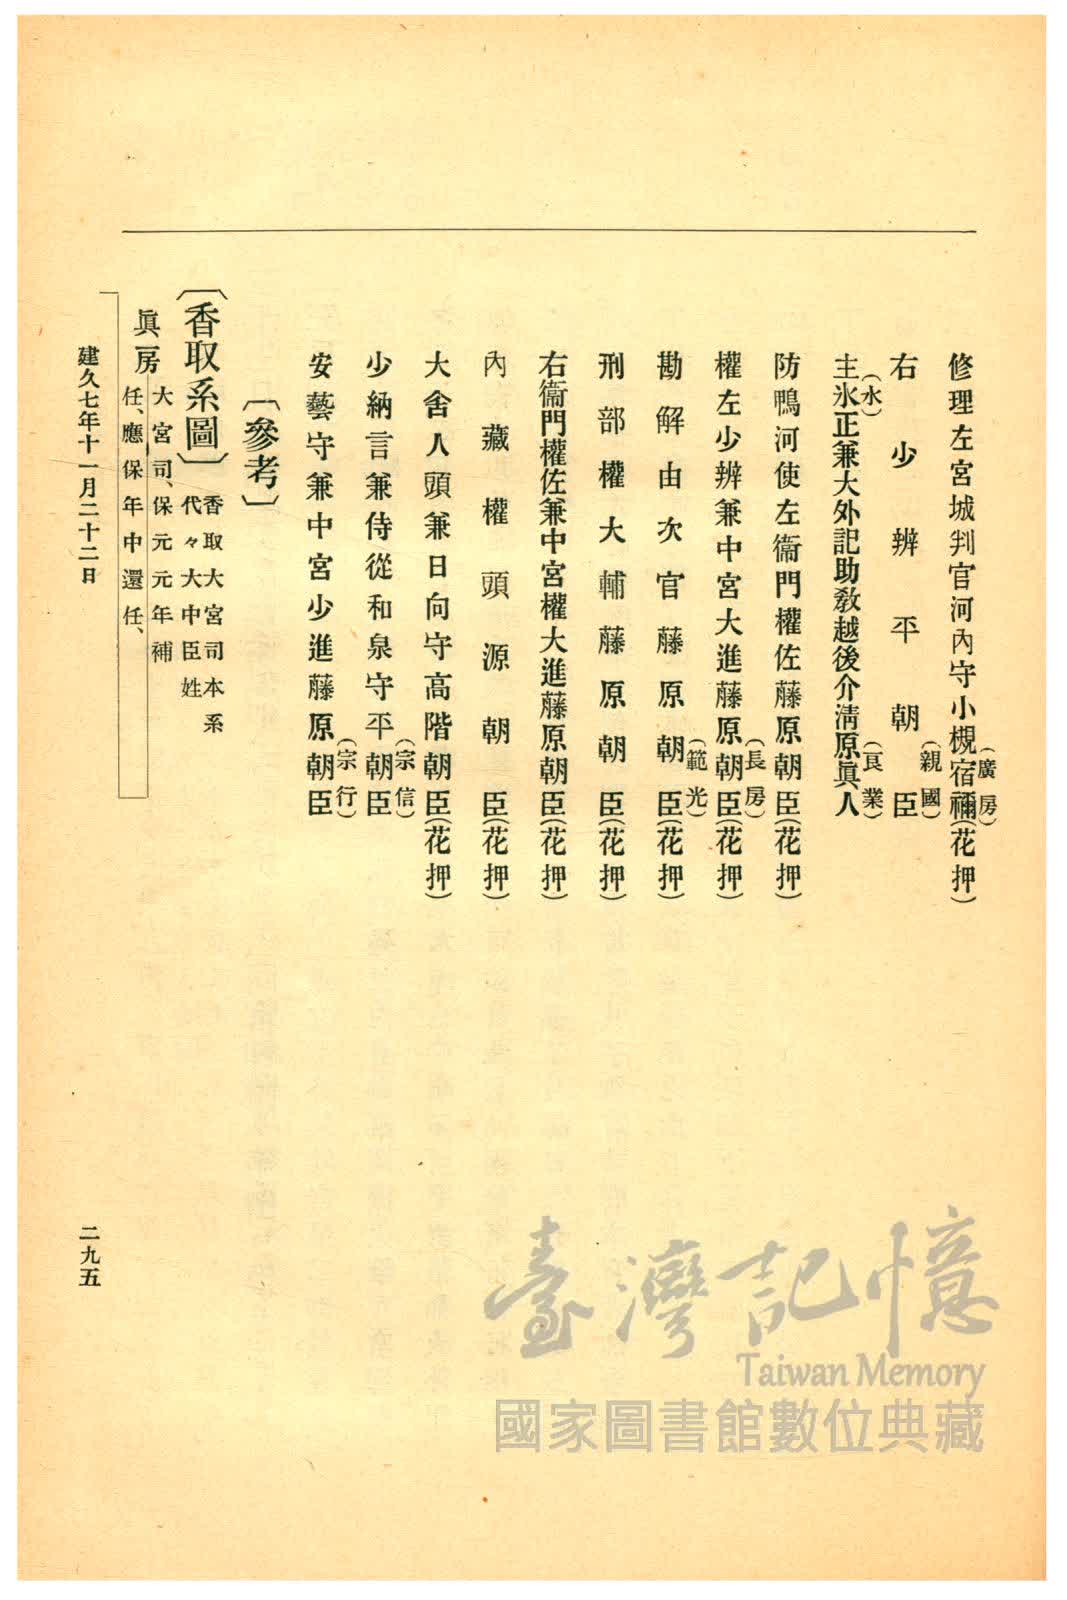 修理左宮城判官河內守小槻宿禰(花押)
(廣房)
右少辨平朝臣
(親國)
主氷正兼大外記助敎越後介淸原眞人
(水)
(良業)
防鴨河使左衞門權佐藤原朝臣(花押)
權左少辨兼中宮大進藤原朝臣(花押)
(長房)
勘解由次官藤原朝臣(花押)
(範光)
刑部權大輔藤原朝臣(花押)
右衞門權佐兼中宮權大進藤原朝臣(花押)
內藏權頭源朝臣(花押)
大舍人頭兼日向守高階朝臣(花押)
少納言兼侍從和泉守平朝臣
(宗信)
安藝守兼中宮少進藤原朝臣
(宗行)
〔參考〕
〔香取系圖〕
香取大宮司本系
代々大中臣姓
眞房
大宮司、保元元年補
任、應保年中還任、
建久七年十一月二十二日
二九五
臺灣記憶
Taiwan Memory
國家圖書館數位典藏